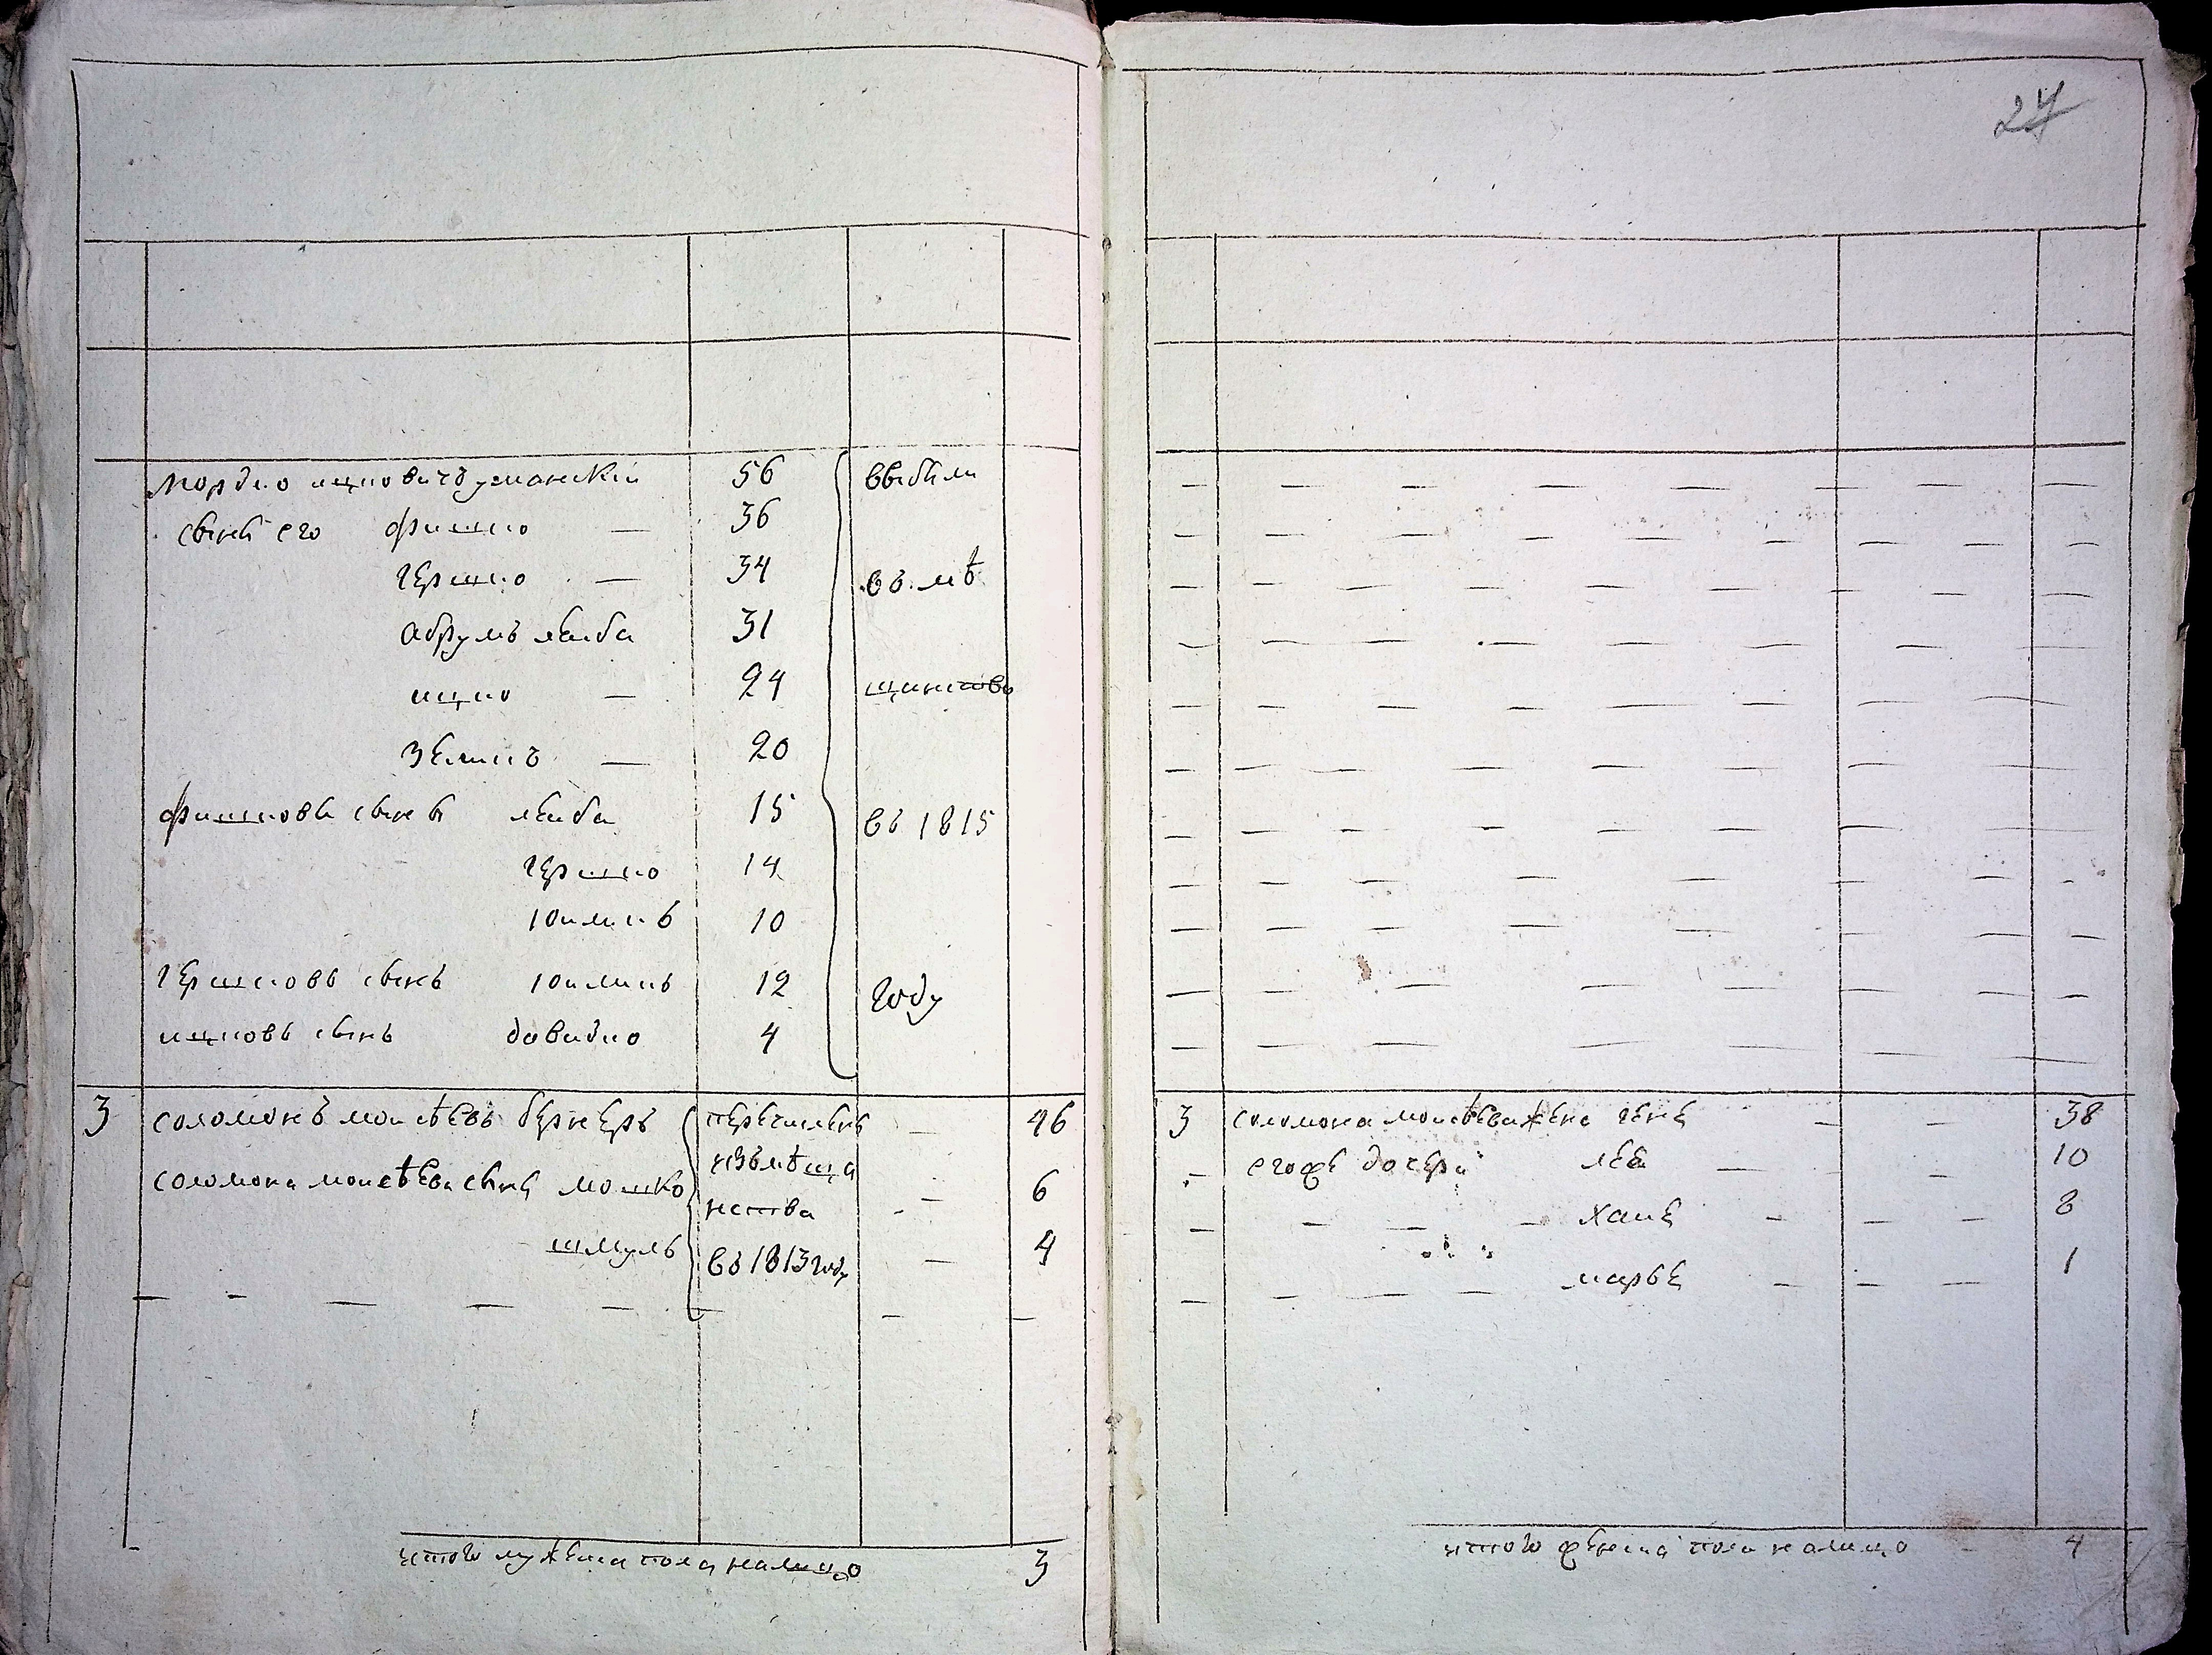 27
мордко ицковичъ уманскій 56 выбыли
сыны его фишко — 36
гершко — 34 въ мѣ
абрумъ лейба 31
ицко — 24 щинство
зеликъ — 20
фишковы сыны лейба 15 въ 1815
гершко 14
10
гершковъ сынъ 12 году
ицковъ сынъ довидко 4
3 соломонъ моисѣевъ бернеръ перечисленъ — 46
изъ мѣща
соломона моисѣева сыны мошко нства — 6
шмуль въ 1813 году — 4
итого мужеска пола налицо 3
3 соломона моисѣева жена гене — — 38
его же дочери лея — — 10
хане — — — 8
марье — — — 1
итого женска пола налицо 4